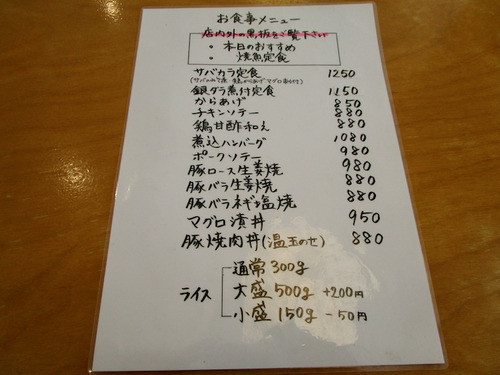 お食事メニュー
店内外の黒板をご覧下さい
・本日のおすすめ
・焼魚定食
サバカラ定食 1250
銀ダラ煮付定食 1150
からあげ 850
チキンソテー 880
鶏甘酢和え 880
煮込ハンバーグ 1080
ポークソテー 980
豚ロース生姜焼 980
豚バラ生姜焼 880
豚バラネギ塩焼 880
マグロ漬丼 950
豚焼肉丼(温玉のせ) 880
ライス
通常 300g
大盛 500g +200円
小盛 150g -50円